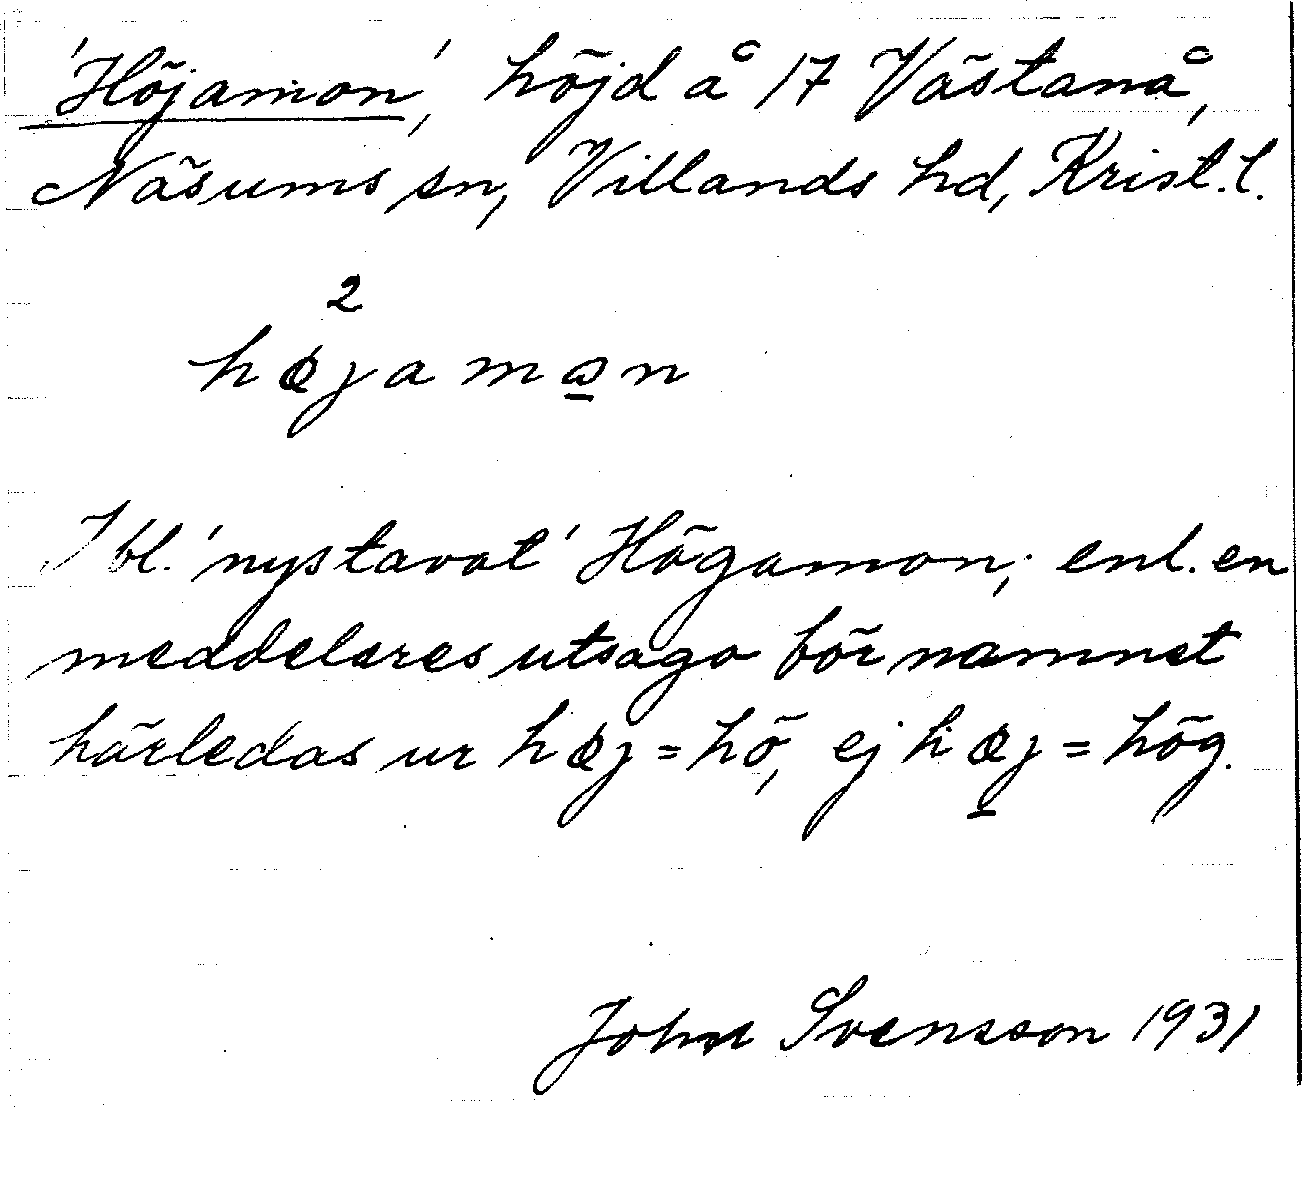 'Höjamon', höjd å 17 Västanå,
Näsums sn, Villands hd, Krist. l.
2
højamo̲n
Ibl. 'nystavat' Högamon; enl. en
meddelares utsago bör namnet
härledas ur høj = hö, ej hø̲j = hög.
John Svensson 1931